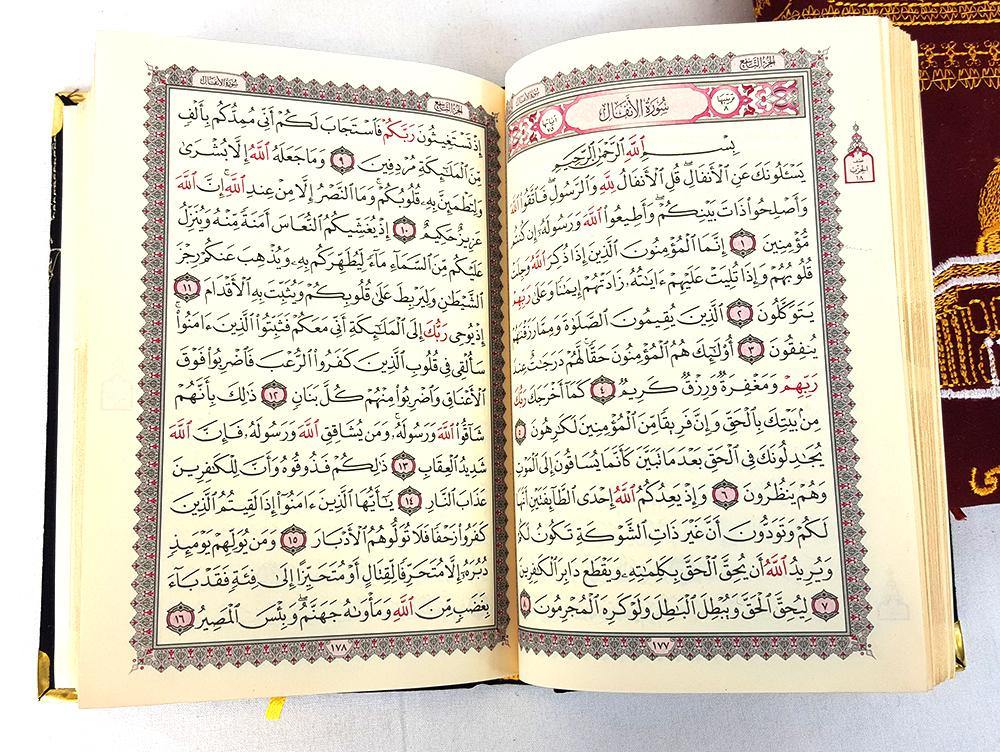 الجزء التاسع
سورة الأنفال
ترتيبها ٨
سُورَةُ الأَنفَالِ
آياتها ٧٥
بِسْمِ ٱللَّهِ ٱلرَّحْمَٰنِ ٱلرَّحِيمِ
يَسْـَٔلُونَكَ عَنِ ٱلْأَنفَالِ قُلِ ٱلْأَنفَالُ لِلَّهِ وَٱلرَّسُولِ فَٱتَّقُوا۟ ٱللَّهَ
وَأَصْلِحُوا۟ ذَاتَ بَيْنِكُمْ وَأَطِيعُوا۟ ٱللَّهَ وَرَسُولَهُۥٓ إِن كُنتُم
مُّؤْمِنِينَ ١ إِنَّمَا ٱلْمُؤْمِنُونَ ٱلَّذِينَ إِذَا ذُكِرَ ٱللَّهُ وَجِلَتْ
قُلُوبُهُمْ وَإِذَا تُلِيَتْ عَلَيْهِمْ ءَايَٰتُهُۥ زَادَتْهُمْ إِيمَٰنًا وَعَلَىٰ رَبِّهِمْ
يَتَوَكَّلُونَ ٢ ٱلَّذِينَ يُقِيمُونَ ٱلصَّلَوٰةَ وَمِمَّا رَزَقْنَٰهُمْ
يُنفِقُونَ ٣ أُو۟لَٰٓئِكَ هُمُ ٱلْمُؤْمِنُونَ حَقًّا لَّهُمْ دَرَجَٰتٌ عِندَ
رَبِّهِمْ وَمَغْفِرَةٌ وَرِزْقٌ كَرِيمٌ ٤ كَمَآ أَخْرَجَكَ رَبُّكَ
مِنۢ بَيْتِكَ بِٱلْحَقِّ وَإِنَّ فَرِيقًا مِّنَ ٱلْمُؤْمِنِينَ لَكَٰرِهُونَ ٥
يُجَٰدِلُونَكَ فِى ٱلْحَقِّ بَعْدَ مَا تَبَيَّنَ كَأَنَّمَا يُسَاقُونَ إِلَى ٱلْمَوْتِ
وَهُمْ يَنظُرُونَ ٦ وَإِذْ يَعِدُكُمُ ٱللَّهُ إِحْدَى ٱلطَّآئِفَتَيْنِ أَنَّهَا
لَكُمْ وَتَوَدُّونَ أَنَّ غَيْرَ ذَاتِ ٱلشَّوْكَةِ تَكُونُ لَكُمْ
وَيُرِيدُ ٱللَّهُ أَن يُحِقَّ ٱلْحَقَّ بِكَلِمَٰتِهِۦ وَيَقْطَعَ دَابِرَ ٱلْكَٰفِرِينَ
٧ لِيُحِقَّ ٱلْحَقَّ وَيُبْطِلَ ٱلْبَٰطِلَ وَلَوْ كَرِهَ ٱلْمُجْرِمُونَ ٨
١٧٧
الحزب
١٨
الجزء التاسع
سورة الأنفال
إِذْ تَسْتَغِيثُونَ رَبَّكُمْ فَٱسْتَجَابَ لَكُمْ أَنِّى مُمِدُّكُم بِأَلْفٍ
مِّنَ ٱلْمَلَٰٓئِكَةِ مُرْدِفِينَ ٩ وَمَا جَعَلَهُ ٱللَّهُ إِلَّا بُشْرَىٰ
وَلِتَطْمَئِنَّ بِهِۦ قُلُوبُكُمْ وَمَا ٱلنَّصْرُ إِلَّا مِنْ عِندِ ٱللَّهِ إِنَّ ٱللَّهَ
عَزِيزٌ حَكِيمٌ ١٠ إِذْ يُغَشِّيكُمُ ٱلنُّعَاسَ أَمَنَةً مِّنْهُ وَيُنَزِّلُ
عَلَيْكُم مِّنَ ٱلسَّمَآءِ مَآءً لِّيُطَهِّرَكُم بِهِۦ وَيُذْهِبَ عَنكُمْ رِجْزَ
ٱلشَّيْطَٰنِ وَلِيَرْبِطَ عَلَىٰ قُلُوبِكُمْ وَيُثَبِّتَ بِهِ ٱلْأَقْدَامَ ١١
إِذْ يُوحِى رَبُّكَ إِلَى ٱلْمَلَٰٓئِكَةِ أَنِّى مَعَكُمْ فَثَبِّتُوا۟ ٱلَّذِينَ ءَامَنُوا۟
سَأُلْقِى فِى قُلُوبِ ٱلَّذِينَ كَفَرُوا۟ ٱلرُّعْبَ فَٱضْرِبُوا۟ فَوْقَ
ٱلْأَعْنَاقِ وَٱضْرِبُوا۟ مِنْهُمْ كُلَّ بَنَانٍ ١٢ ذَٰلِكَ بِأَنَّهُمْ
شَآقُّوا۟ ٱللَّهَ وَرَسُولَهُۥ وَمَن يُشَاقِقِ ٱللَّهَ وَرَسُولَهُۥ فَإِنَّ ٱللَّهَ
شَدِيدُ ٱلْعِقَابِ ١٣ ذَٰلِكُمْ فَذُوقُوهُ وَأَنَّ لِلْكَٰفِرِينَ
عَذَابَ ٱلنَّارِ ١٤ يَٰٓأَيُّهَا ٱلَّذِينَ ءَامَنُوٓا۟ إِذَا لَقِيتُمُ ٱلَّذِينَ
كَفَرُوا۟ زَحْفًا فَلَا تُوَلُّوهُمُ ٱلْأَدْبَارَ ١٥ وَمَن يُوَلِّهِمْ يَوْمَئِذٍ
دُبُرَهُۥٓ إِلَّا مُتَحَرِّفًا لِّقِتَالٍ أَوْ مُتَحَيِّزًا إِلَىٰ فِئَةٍ فَقَدْ بَآءَ
بِغَضَبٍ مِّنَ ٱللَّهِ وَمَأْوَىٰهُ جَهَنَّمُ وَبِئْسَ ٱلْمَصِيرُ ١٦
١٧٨